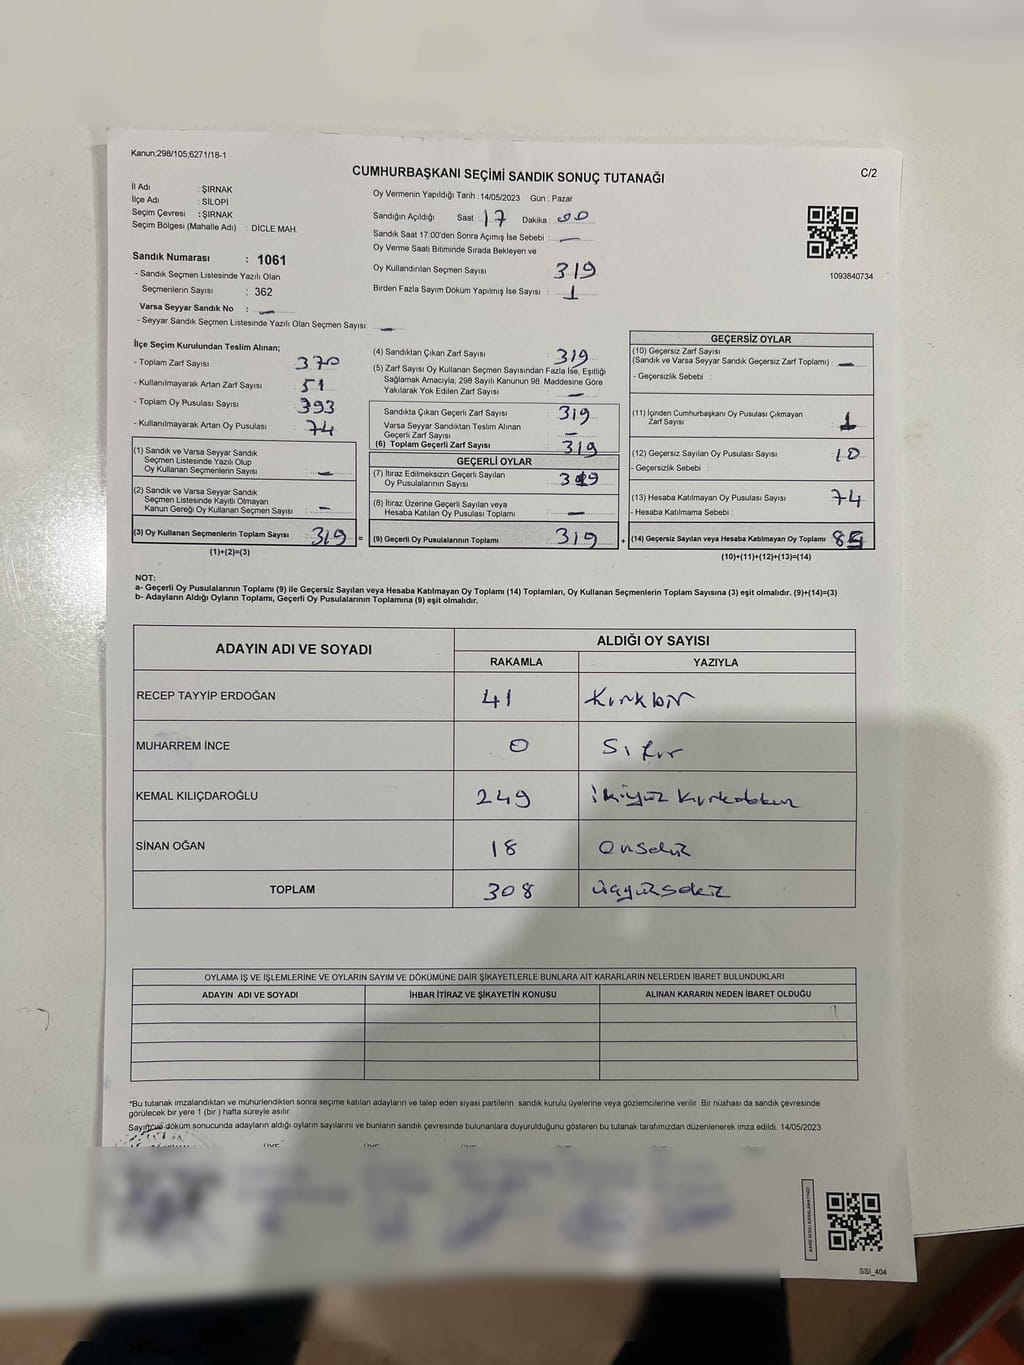 Kanun;298/105,6271/18-1
CUMHURBAŞKANI SEÇİMİ SANDIK SONUÇ TUTANAĞI
C/2
İl Adı : ŞIRNAK
İlçe Adı : SİLOPİ
Seçim Çevresi : ŞIRNAK
Seçim Bölgesi (Mahalle Adı) : DİCLE MAH.
Oy Vermenin Yapıldığı Tarih : 14/05/2023 Gün : Pazar
Sandığın Açıldığı Saat : 17 Dakika : 00
Sandık Saat 17.00'den Sonra Açımış İse Sebebi : —
Oy Verme Saati Bitiminde Sırada Bekleyen ve
Oy Kullandırılan Seçmen Sayısı : 319
Birden Fazla Sayım Döküm Yapılmış İse Sayısı : 1
1093840734
Sandık Numarası : 1061
- Sandık Seçmen Listesinde Yazılı Olan
Seçmenlerin Sayısı : 362
Varsa Seyyar Sandık No : —
- Seyyar Sandık Seçmen Listesinde Yazılı Olan Seçmen Sayısı: —
İlçe Seçim Kurulundan Teslim Alınan;
- Toplam Zarf Sayısı : 370
- Kullanılmayarak Artan Zarf Sayısı : 51
- Toplam Oy Pusulası Sayısı : 393
- Kullanılmayarak Artan Oy Pusulası : 74
(1) Sandık ve Varsa Seyyar Sandık
Seçmen Listesinde Yazılı Olup
Oy Kullanan Seçmenlerin Sayısı : —
(2) Sandık ve Varsa Seyyar Sandık
Seçmen Listesinde Kayıtlı Olmayan
Kanun Gereği Oy Kullanan Seçmen Sayısı : —
(3) Oy Kullanan Seçmenlerin Toplam Sayısı : 319 =
(1)+(2)=(3)
(4) Sandıktan Çıkan Zarf Sayısı : 319
(5) Zarf Sayısı Oy Kullanan Seçmen Sayısından Fazla İse, Eşitliği
Sağlamak Amacıyla, 298 Sayılı Kanunun 98. Maddesine Göre
Yakılarak Yok Edilen Zarf Sayısı : —
Sandıkta Çıkan Geçerli Zarf Sayısı : 319
Varsa Seyyar Sandıktan Teslim Alınan
Geçerli Zarf Sayısı : —
(6) Toplam Geçerli Zarf Sayısı : 319
GEÇERLİ OYLAR
(7) İtiraz Edilmeksizin Geçerli Sayılan
Oy Pusulalarının Sayısı : 319
(8) İtiraz Üzerine Geçerli Sayılan veya
Hesaba Katılan Oy Pusulası Toplamı : —
(9) Geçerli Oy Pusulalarının Toplamı : 319 +
GEÇERSİZ OYLAR
(10) Geçersiz Zarf Sayısı
(Sandık ve Varsa Seyyar Sandık Geçersiz Zarf Toplamı) : —
- Geçersizlik Sebebi :
(11) İçinden Cumhurbaşkanı Oy Pusulası Çıkmayan
Zarf Sayısı : 1
(12) Geçersiz Sayılan Oy Pusulası Sayısı : 10
- Geçersizlik Sebebi :
(13) Hesaba Katılmayan Oy Pusulası Sayısı : 74
- Hesaba Katılmama Sebebi :
(14) Geçersiz Sayılan veya Hesaba Katılmayan Oy Toplamı : 85
(10)+(11)+(12)+(13)=(14)
NOT:
a- Geçerli Oy Pusulalarının Toplamı (9) ile Geçersiz Sayılan veya Hesaba Katılmayan Oy Toplamı (14) Toplamları, Oy Kullanan Seçmenlerin Toplam Sayısına (3) eşit olmalıdır. (9)+(14)=(3)
b- Adayların Aldığı Oyların Toplamı, Geçerli Oy Pusulalarının Toplamına (9) eşit olmalıdır.
ADAYIN ADI VE SOYADI
ALDIĞI OY SAYISI
RAKAMLA YAZIYLA
RECEP TAYYİP ERDOĞAN 41 Kırkbir
MUHARREM İNCE 0 Sıfır
KEMAL KILIÇDAROĞLU 249 ikiyüz kırkdokkuz
SİNAN OĞAN 18 Onsekiz
TOPLAM 308 üçyüzsekiz
OYLAMA İŞ VE İŞLEMLERİNE VE OYLARIN SAYIM VE DÖKÜMÜNE DAİR ŞİKAYETLERLE BUNLARA AİT KARARLARIN NELERDEN İBARET BULUNDUKLARI
ADAYIN ADI VE SOYADI İHBAR İTİRAZ VE ŞİKAYETİN KONUSU ALINAN KARARIN NEDEN İBARET OLDUĞU
*Bu tutanak imzalandıktan ve mühürlendikten sonra seçime katılan adayların ve talep eden siyasi partilerin sandık kurulu üyelerine veya gözlemcilerine verilir. Bir nüshası da sandık çevresinde
görülecek bir yere 1 (bir) hafta süreyle asılır.
Sayım ve döküm sonucunda adayların aldığı oyların sayılarını ve bunların sandık çevresinde bulunanlara duyurulduğunu gösteren bu tutanak tarafımızdan düzenlenerek imza edildi. 14/05/2023
SSI_404